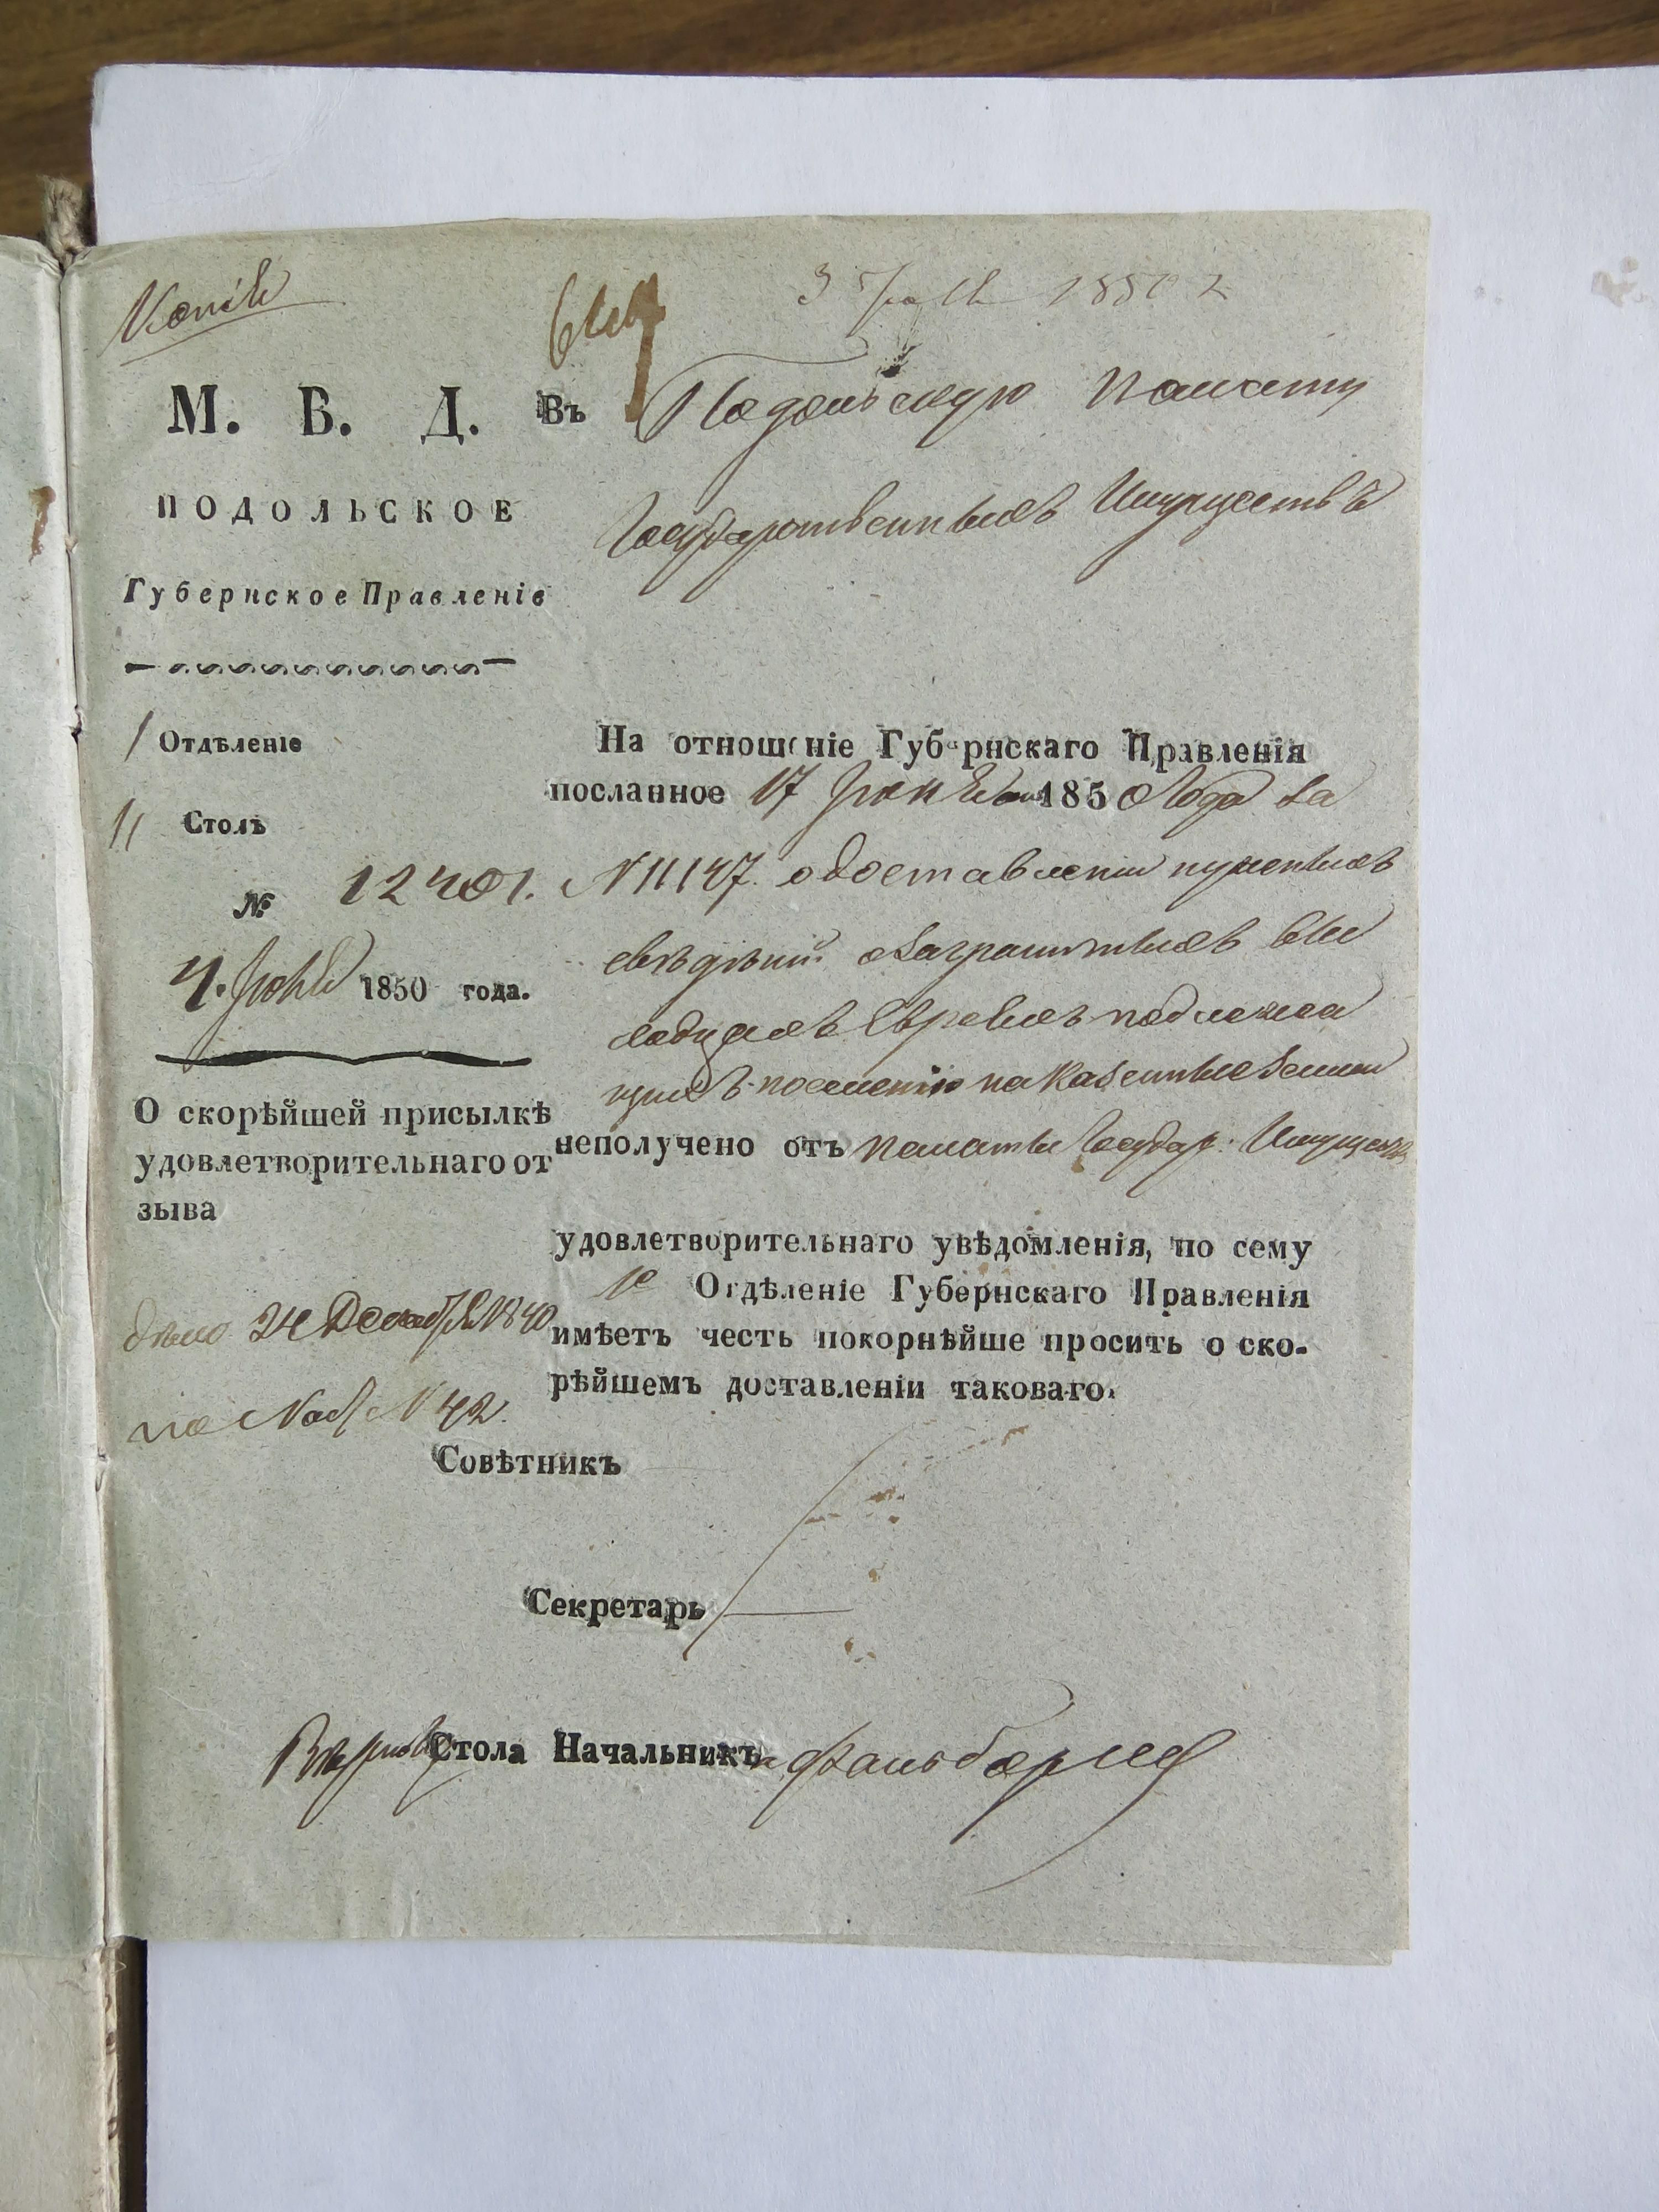 Копія
М. В. Д.
ПОДОЛЬСКОЕ
Губернское Правленіе
1 Отдѣленіе
11 Столъ
№ 12401.
4. Іюня 1850 года.
О скорѣйшей присылкѣ
удовлетворительнаго от
зыва
дѣло 24 Декабря 1840
по Наст N 42.
Въ Подольскую Палату
Государственныхъ Имуществъ
На отношеніе Губернскаго Правленія
посланное 17 1850 года за
N 11147. о доставленіи нужныхъ
свѣдѣній о заграничныхъ вы
ходцахъ Евреяхъ подлежа
щихъ поселенію на казенные земли
неполучено отъ Палаты Государ: Имуществъ
удовлетворительнаго увѣдомленія, по сему
1е Отдѣленіе Губернскаго Правленія
имѣетъ честь покорнѣйше просить о ско-
рѣйшемъ доставленіи таковаго.
Совѣтникъ
Секретарь
Стола Начальникъ Фальборкъ